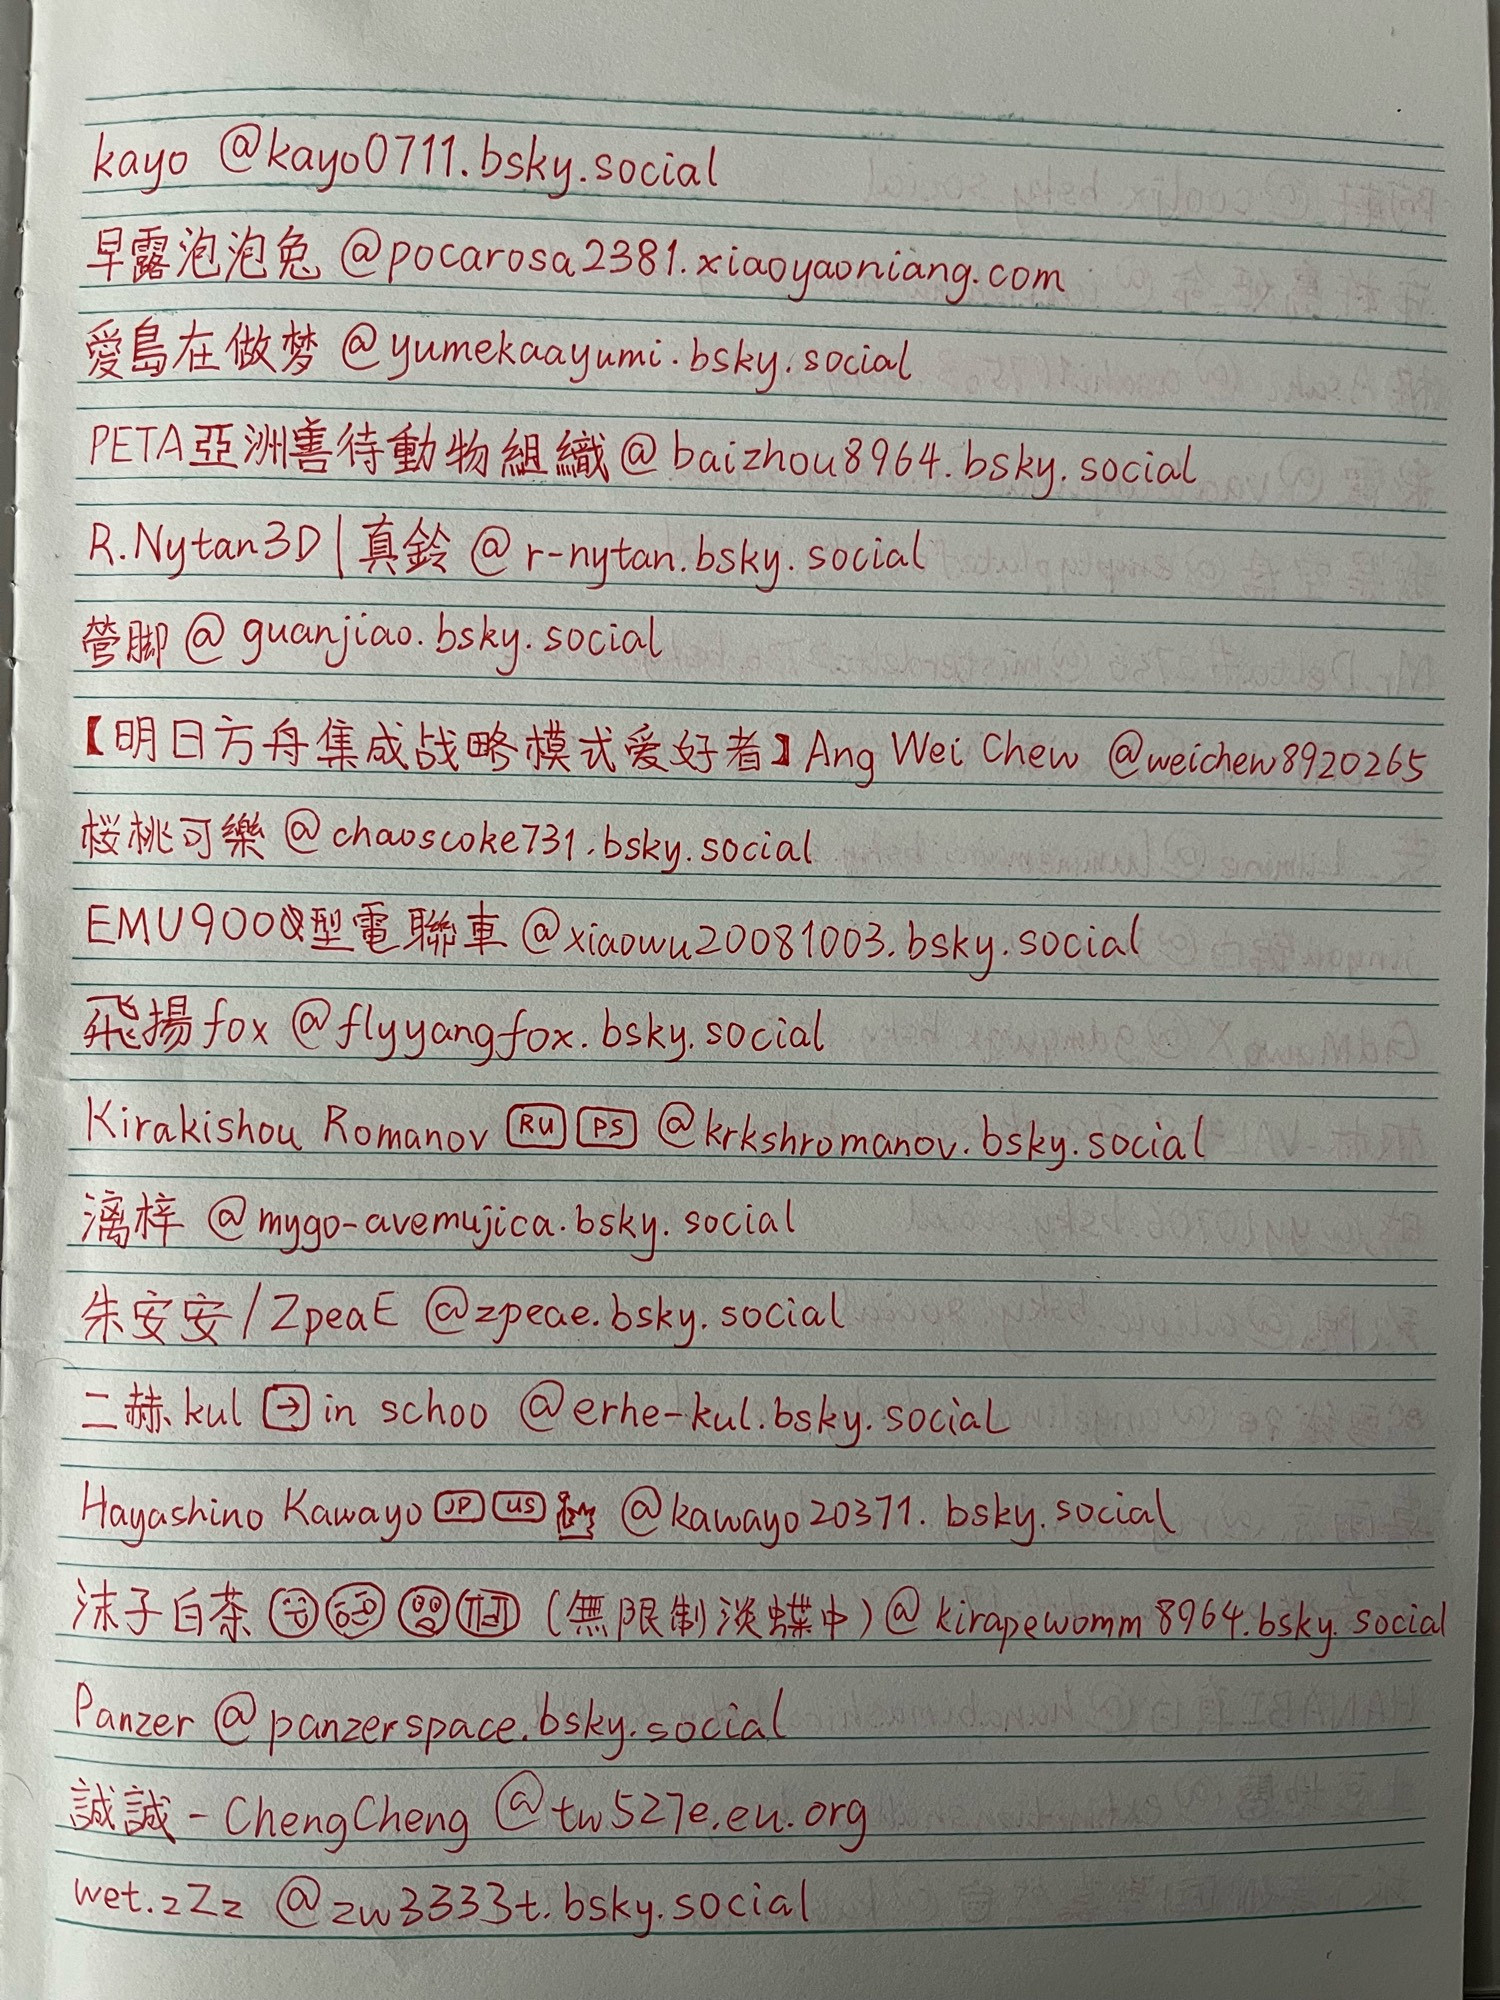 kayo @kayo0711.bsky.social
早露泡泡兔 @pocarosa2381.xiaoyaoniang.com
愛島在做梦 @yumekaayumi.bsky.social
PETA亞洲善待動物組織@baizhou8964.bsky.social
R.Nytan3D|真鈴 @r-nytan.bsky.social
管脚@guanjiao.bsky.social
【明日方舟集成战略模式爱好者】Ang Wei Chew @weichew8920265
桜桃可樂 @chaoscoke731.bsky.social
EMU900型電聯車 @xiaowu20081003.bsky.social
飛揚fox @flyyangfox.bsky.social
Kirakishou Romanov RU PS @krkshromanov.bsky.social
漓梓 @mygo-avemujica.bsky.social
朱安安/ZpeaE @zpeae.bsky.social
二赫.kul → in schoo @erhe-kul.bsky.social
Hayashino Kawayo JP US @kawayo20371.bsky.social
沫子白茶 (無限制淡蝶中)@kirapewomm8964.bsky.social
Panzer @panzerspace.bsky.social
誠誠-ChengCheng @tw527e.eu.org
wet.zZz @zw3333t.bsky.social